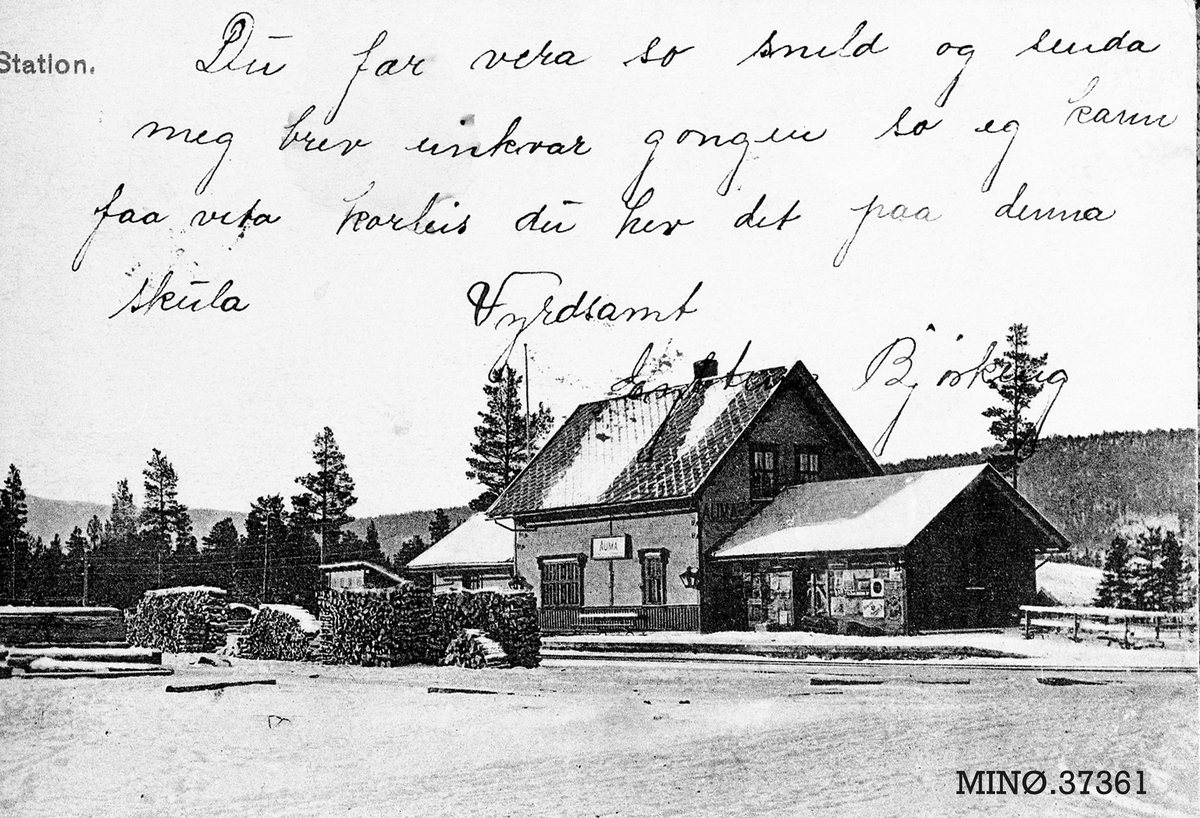 Station.
Du far vera so snild og senda
meg brev einkvar gongen so eg kann
faa vita korleis du hev det paa denna
skula
Vyrdsamt
Bjørkeng
AUMA
AUMA
MINØ.37361